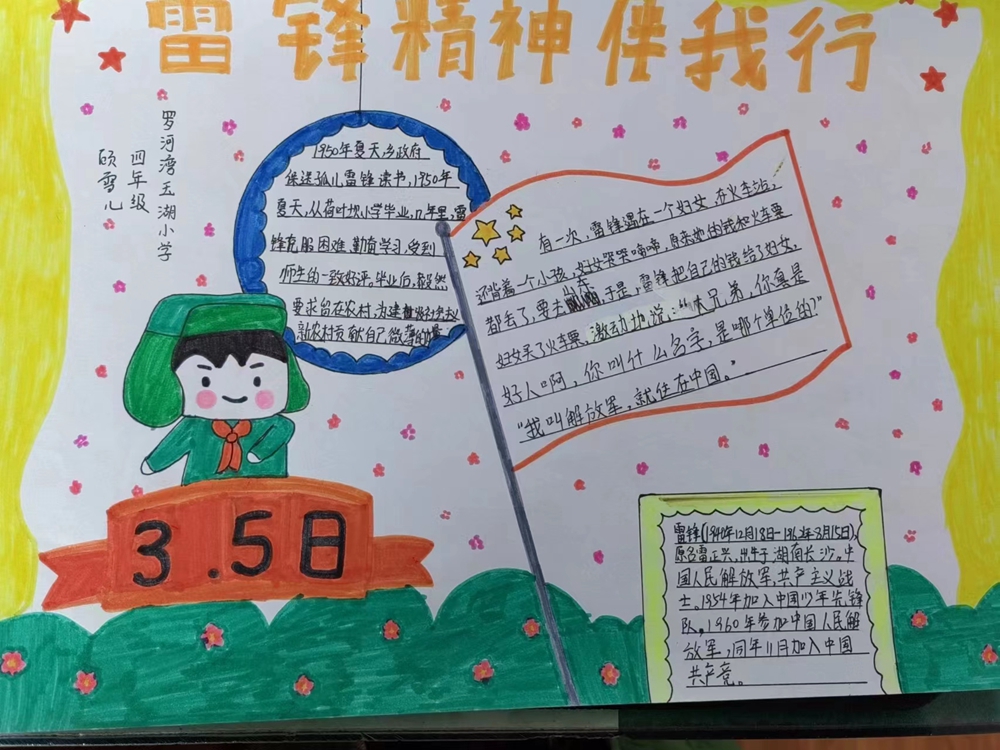 雷锋精神伴我行
罗河湾玉湖小学
四年级
顾雪儿
1950年夏天乡政府
保送孤儿雷锋读书,1950年
夏天,从荷叶坝小学毕业,几年里,雷
锋克服困难,勤奋学习,受到
师生的一致好评。毕业后,毅然
要求留在农村,为建设社会主义
新农村贡献自己微薄的力量
有一次,雷锋遇在一个妇女,在火车站,
还背着一个小孩,妇女哭哭啼啼,原来她的钱和火车票
都丢了,要去山东,于是,雷锋把自己的钱给了妇女,
妇女买了火车票,激动地说:“大兄弟,你真是
好人啊,你叫什么名字,是哪个单位的?”
“我叫解放军,就住在中国。”
3.5日
雷锋(1940年12月18日-1962年8月15日),
原名雷正兴,出生于湖南长沙。中
国人民解放军,共产主义战
士。1954年加入中国少年先锋
队,1960年参加中国人民解
放军,同年11月加入中国
共产党。